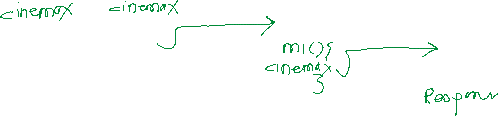 cinemax cinemax
m1(){
cinemax
}
Respons